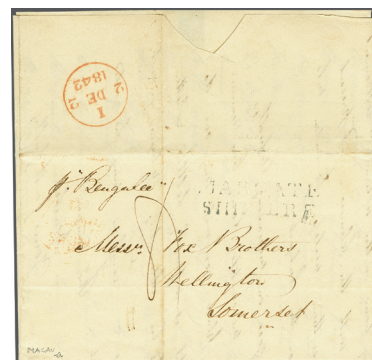 1
DE 2
1842
2
2
pr "Bengalee"
MARGATE
SHIP LETTER
8
Messrs Fox Brothers
Wellington
Somerset
MACAU